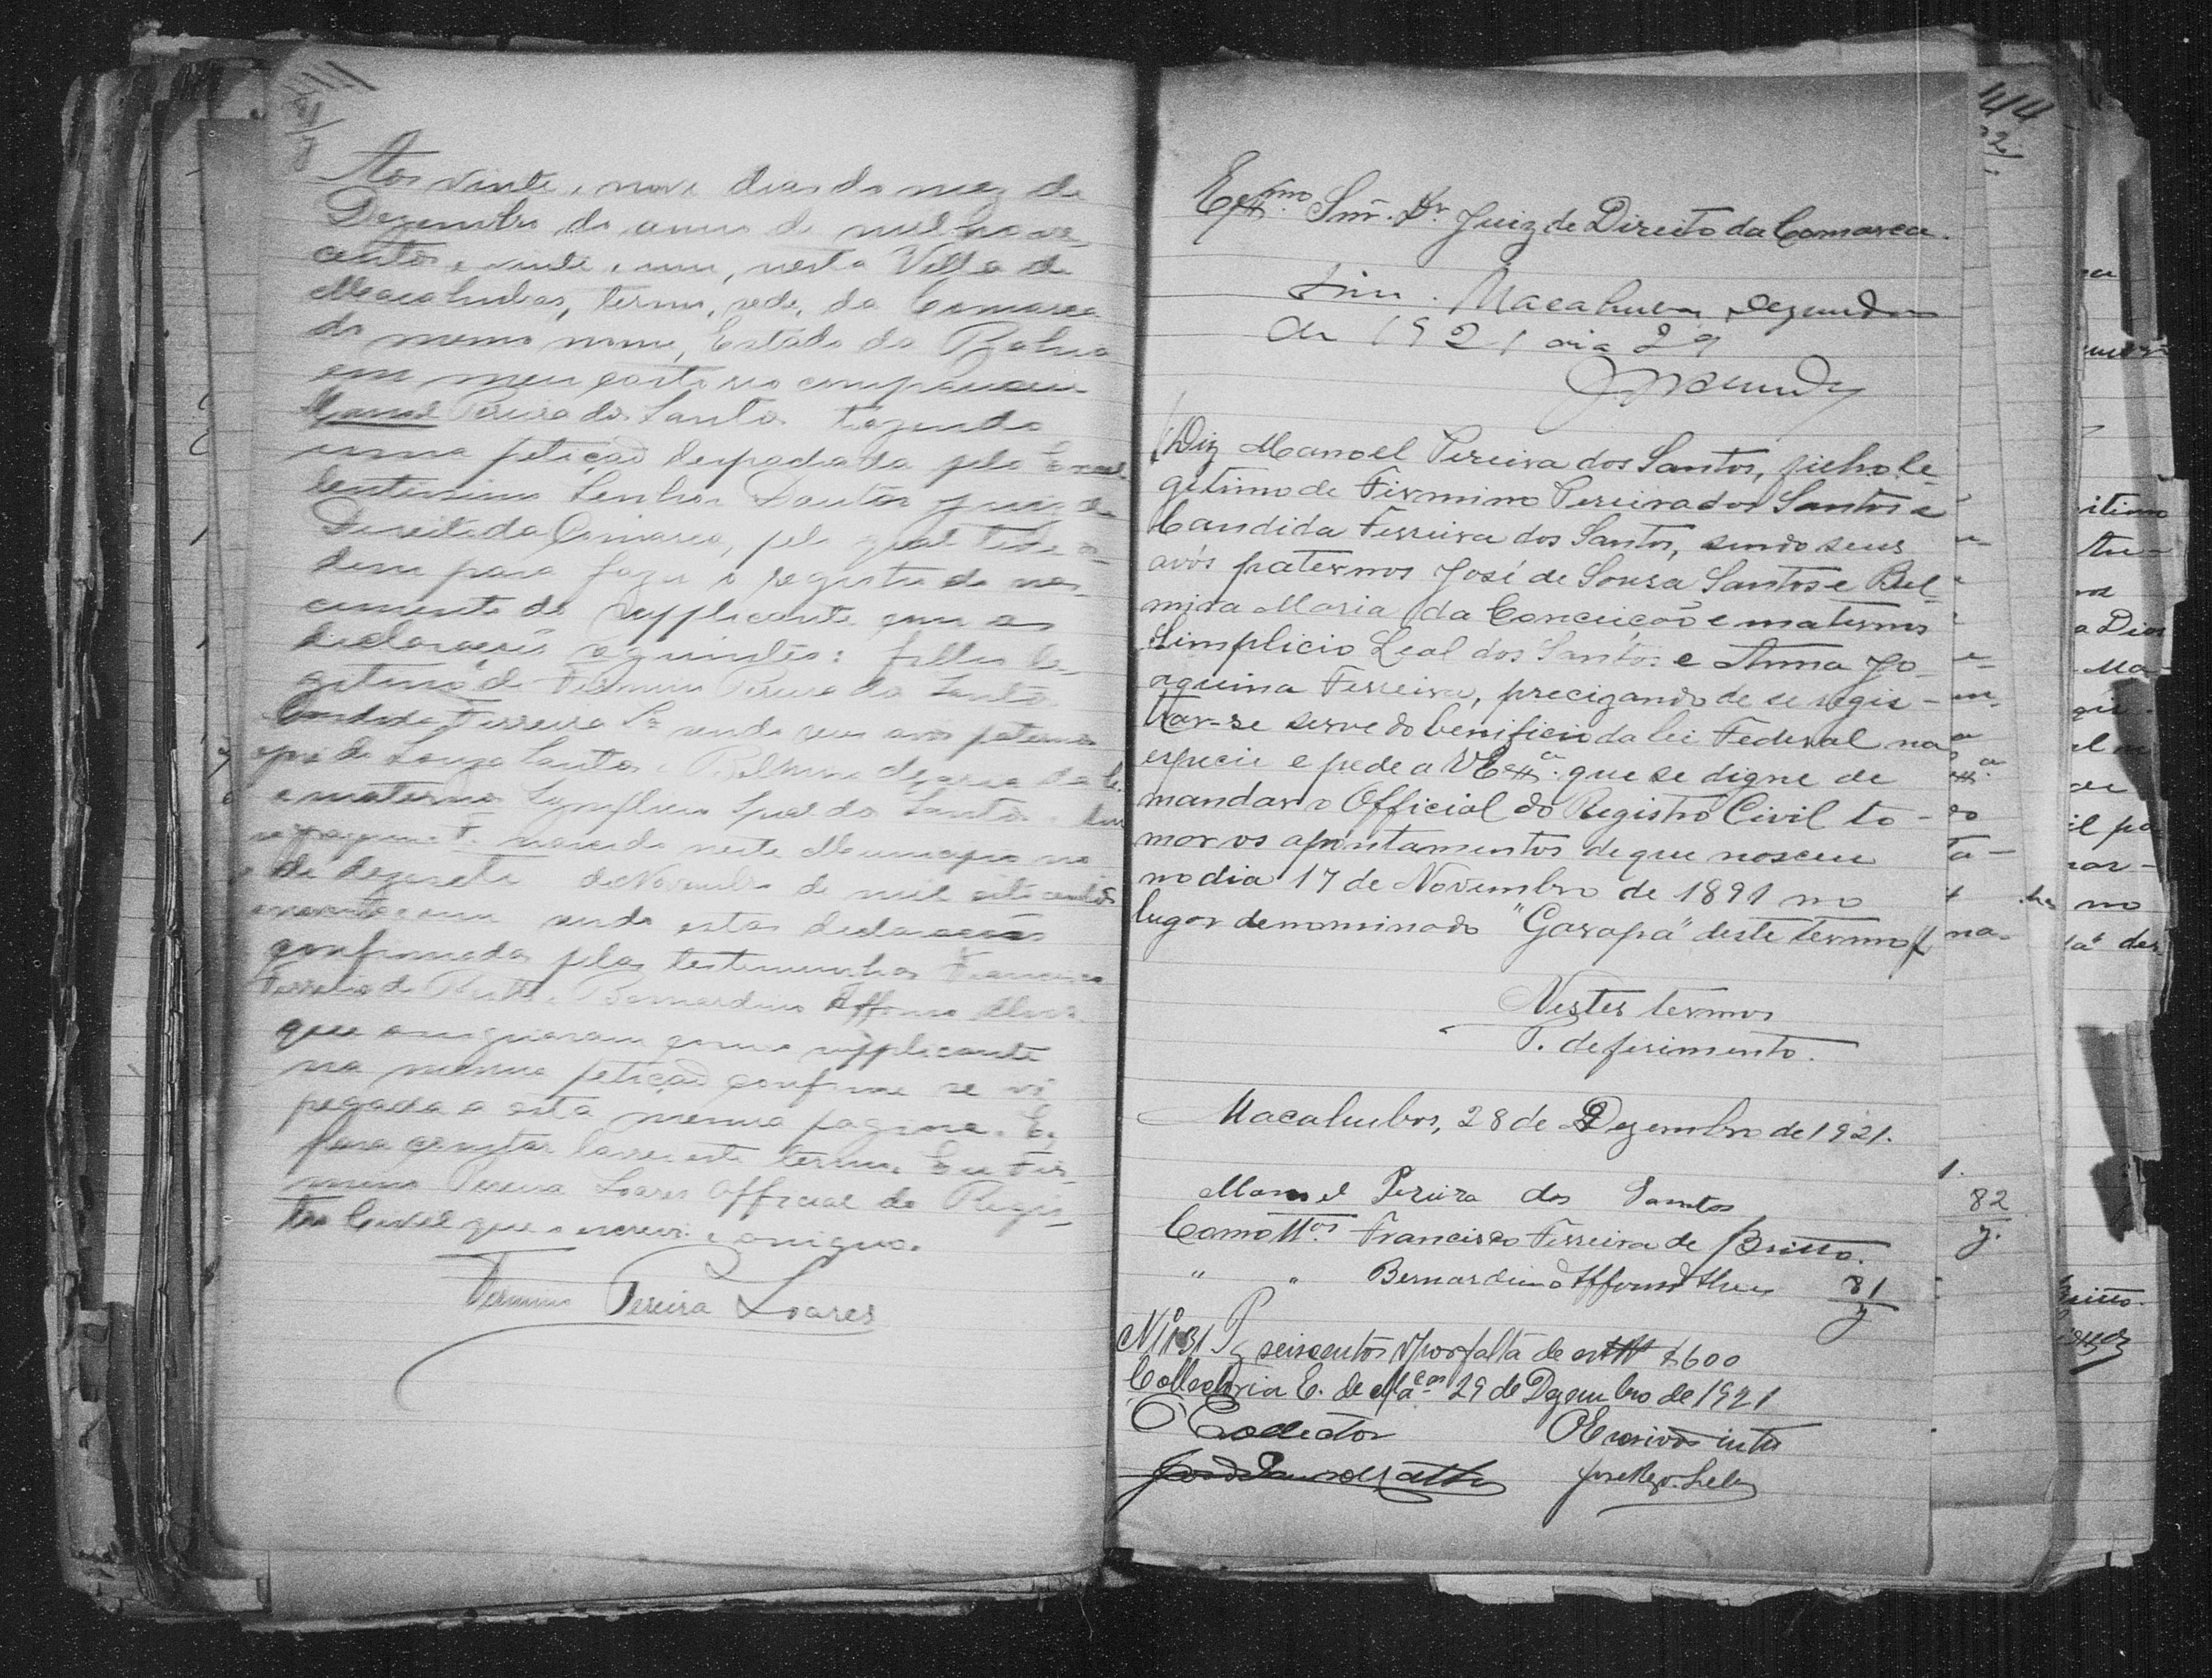 Aos vinte e nove dias do mez de
Dezembro do anno de mil nove
centos e vinte e um, nesta Villa de
Macahubas, termo, sede, da Comarca
do mesmo nome, Estado da Bahia
em meu cartorio compareceu
Manoel Pereira dos Santos trazendo
uma petição despachada pelo Excel
lentissimo Senhor Doutor Juiz de
Direito da Comarca, pela qual teve or
dem para fazer o registro do nas
cimento do supplicante com as
declarações seguintes: filho le
gitimo de Firmino Pereira dos Santos
Candida Ferreira Sos sendo seus avós paternos
José de Souza Santos e Belmira Maria da C.
e maternos Simplicio Leal dos Santos e Anna
Joaquina F. nascido neste Municipio no
dia dezesete de Novembro de mil oito centos
noventa e um sendo estas declarações
confirmadas pelas testemunhas Francisco
Ferreira de Britto e Bernardino Affonso Alves
que assignaram com o supplicante
na mesma petição conforme se vê
pegada a esta mesma pagina. E
para constar lavrei este termo. Eu Fir
mino Pereira Soares Official do Regis
tro Civil que o escrevi e assigno.
Firmino Pereira Soares
144
Exmo. Snr. Dr. Juiz de Direito da Comarca.
Sim. Macahubas, Dezembro
de 1921 dia 29
Diz Manoel Pereira dos Santos, filho le-
gitimo de Firmino Pereira dos Santos e
Candida Ferreira dos Santos, sendo seus
avós paternos José de Sousa Santos e Bel-
mira Maria da Conceição e maternos
Simplicio Leal dos Santos e Anna Jo-
aquina Ferreira, precizando de se regis-
trar-se serve do beneficio da lei Federal na
especie e pede a V Exa. que se digne de
mandar o Official do Registro Civil to-
mar os apontamentos de que nasceu
no dia 17 de Novembro de 1891 no
lugar denominado "Garapa" deste termo
Nestes termos
P. deferimento.
Macahubas, 28 de Dezembro de 1921.
Manoel Pereira dos Santos
Como ttas. Francisco Ferreira de Britto.
" " Bernardino Affonso Alves
81
Nº 131 Pg seiscentos rs por falta de estp $600
Collectoria E. de Macas 29 de Dezembro de 1921
O Collector O Escrivão into
82